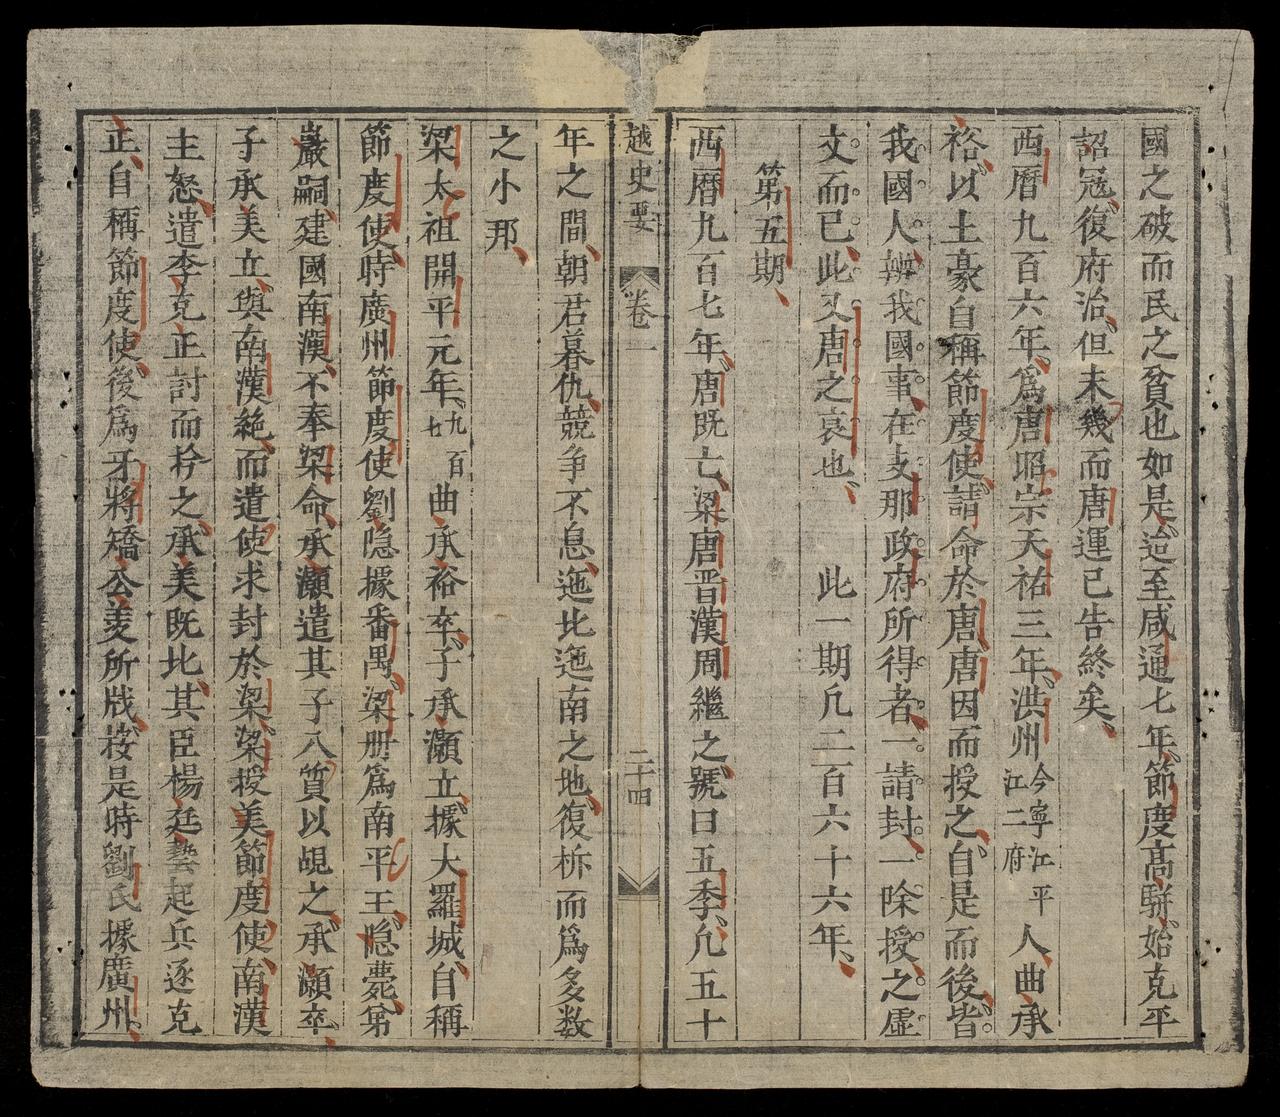 國之破而民之貧也如是迨至咸通七年節度高駢始克平
詔寇復府治但未幾而唐運已告終矣
西曆九百六年爲唐昭宗天祐三年洪州今寧江平江二府人曲承
裕以土豪自稱節度使請命於唐唐因而授之自是而後皆
我國人辦我國事在支那政府所得者一請封一除授之虛
文而已此又唐之哀也 此一期凢二百六十六年
第五期
西曆九百七年唐既亡梁唐晋漢周繼之號曰五季凢五十
越史要 卷一 二十四
年之間朝君暮仇競争不息迤北迤南之地復柝而爲多数
之小邦
梁太祖開平元年九百七曲承裕卒子承灝立據大羅城自稱
節度使時廣州節度使劉隐據番禺梁册爲南平王隐薨弟
巖嗣建國南漢不奉梁命承灝遣其子入質以覘之承灝卒
子承美立與南漢絶而遣使求封於梁梁授美節度使南漢
主怒遣李克正討而拎之承美既北其臣楊廷藝起兵逐克
正自稱節度使後爲牙將矯公羡所戕按是時劉氏據廣州